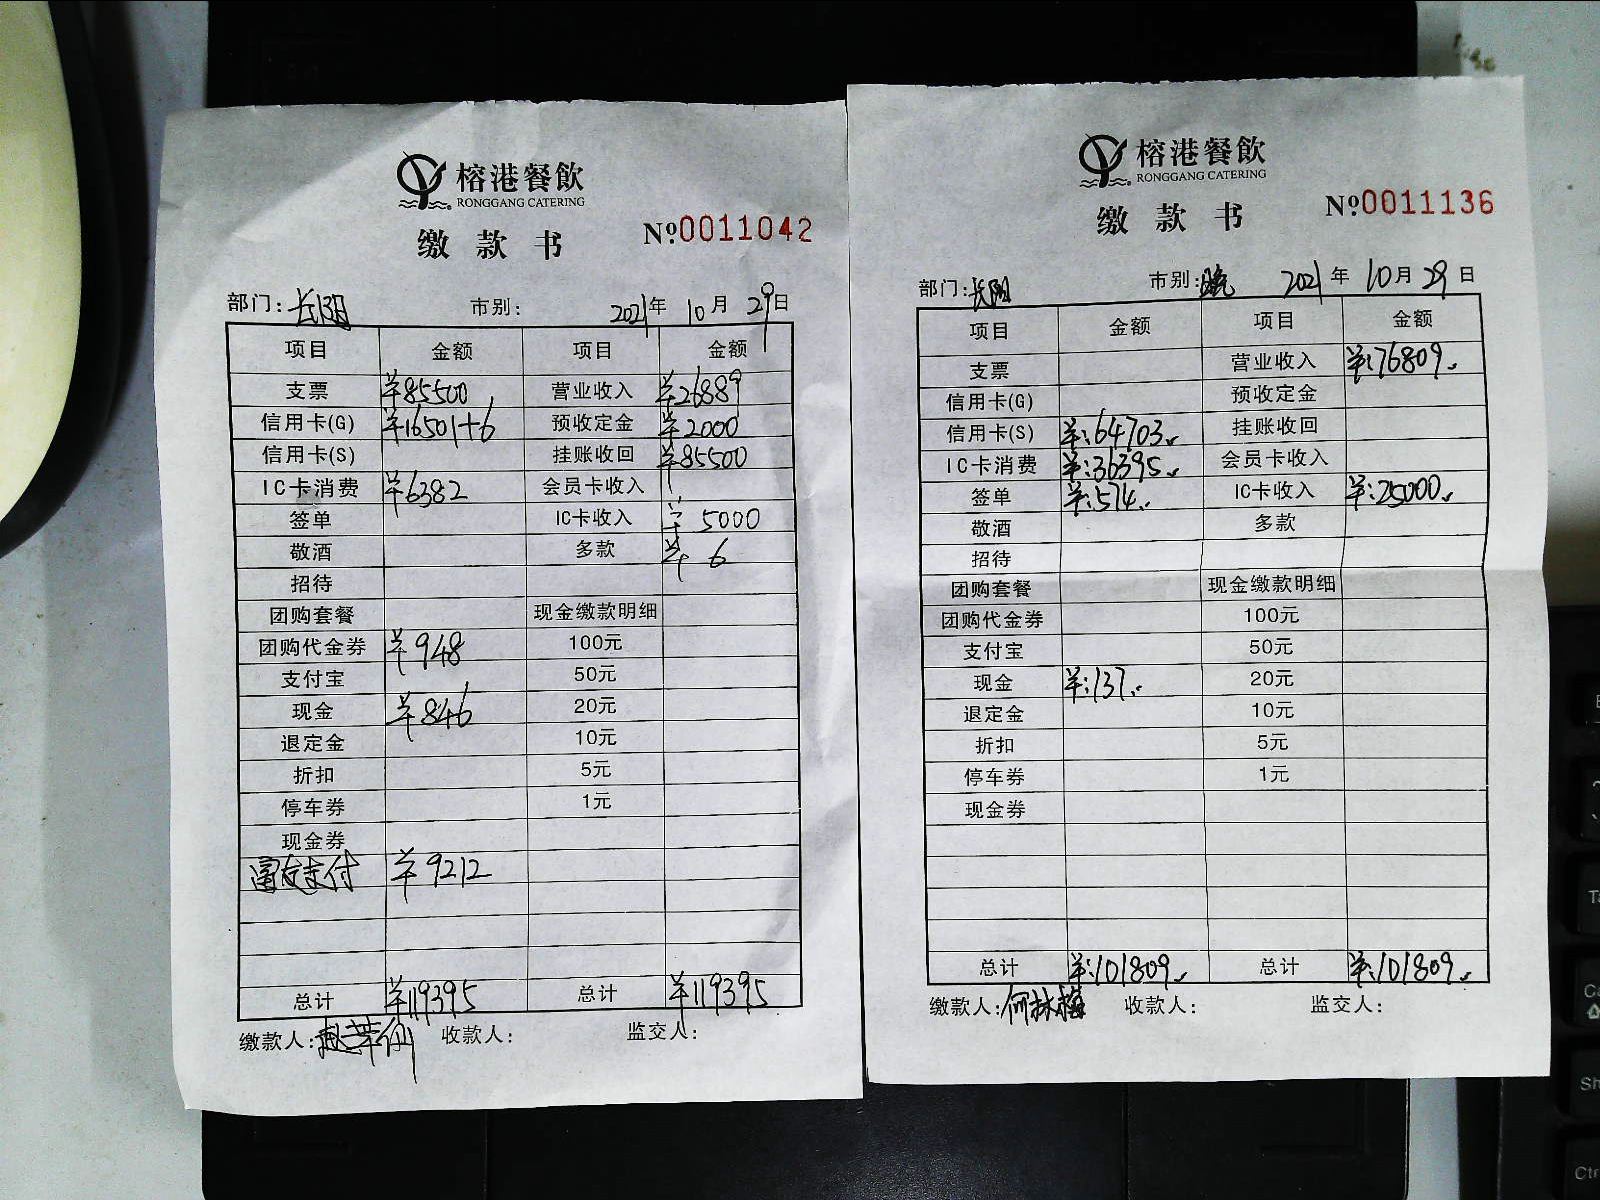 榕港餐飲
RONGGANG CATERING
缴款书
№0011042
部门:长阳 市别: 2021年 10月 29日
项目 金额 项目 金额
支票 ¥85500 营业收入 ¥26889
信用卡(G) ¥16501+6 预收定金 ¥2000
信用卡(S) 挂账收回 ¥85500
IC卡消费 ¥6382 会员卡收入
签单 IC卡收入 ¥5000
敬酒 多款 ¥6
招待
团购套餐 现金缴款明细
团购代金券 ¥948 100元
支付宝 50元
现金 ¥846 20元
退定金 10元
折扣 5元
停车券 1元
现金券
支付 ¥9212
总计 ¥119395 总计 ¥119395
缴款人:赵 收款人: 监交人:
榕港餐飲
RONGGANG CATERING
缴款书
№0011136
部门:长阳 市别:晚 2021年 10月 29日
项目 金额 项目 金额
支票 营业收入 ¥:76809.
信用卡(G) 预收定金
信用卡(S) ¥:64703. 挂账收回
IC卡消费 ¥:36395. 会员卡收入
签单 ¥:574. IC卡收入 ¥:25000.
敬酒 多款
招待
团购套餐 现金缴款明细
团购代金券 100元
支付宝 50元
现金 ¥:137. 20元
退定金 10元
折扣 5元
停车券 1元
现金券
总计 ¥:101809. 总计 ¥:101809.
缴款人:何林梅 收款人: 监交人: